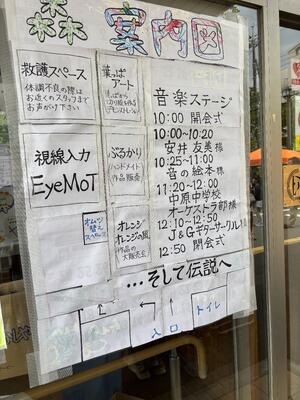 森 案内図
救護スペース
体調不良の際は
お近くのスタッフまで
お声がけ下さい
葉っぱ
アート
視線入力
EyeMoT
ぶるかり
ハンドメイド
作品販売
オムツ
替え
スペース
オレンジ
オレンジの風
作品の
大販売会
音楽ステージ
10:00 開会式
10:00~10:20
安井 友美様
10:25~11:00
音の絵本様
11:20~12:00
中原中学校
オーケストラ部様
12:10~12:50
J&Gギターサークル様
12:50 閉会式
...そして伝説へ
入口
トイレ